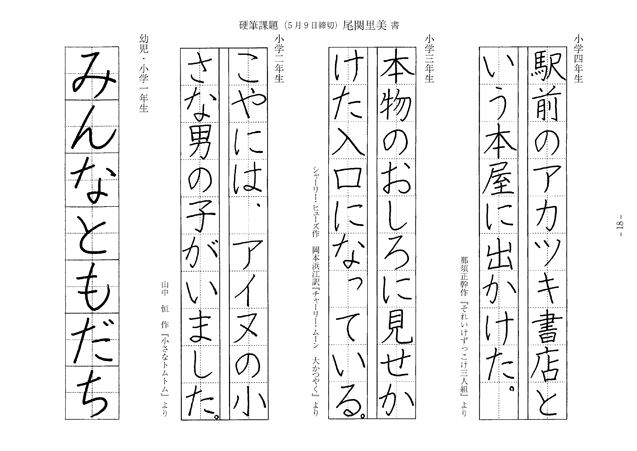 硬筆課題（5月9日締切）尾関里美 書
小学四年生
駅前のアカツキ書店と
いう本屋に出かけた。
那須正幹作『それいけずっこけ三人組』より
小学三年生
本物のおしろに見せか
けた入口になっている。
シャーリー・ヒューズ作 岡本浜江訳『チャーリー・ムーン 大かつやく』より
小学二年生
こやには、アイヌの小
さな男の子がいました。
山中 恒 作『小さなトムトム』より
幼児・小学一年生
みんなともだち
- 18 -